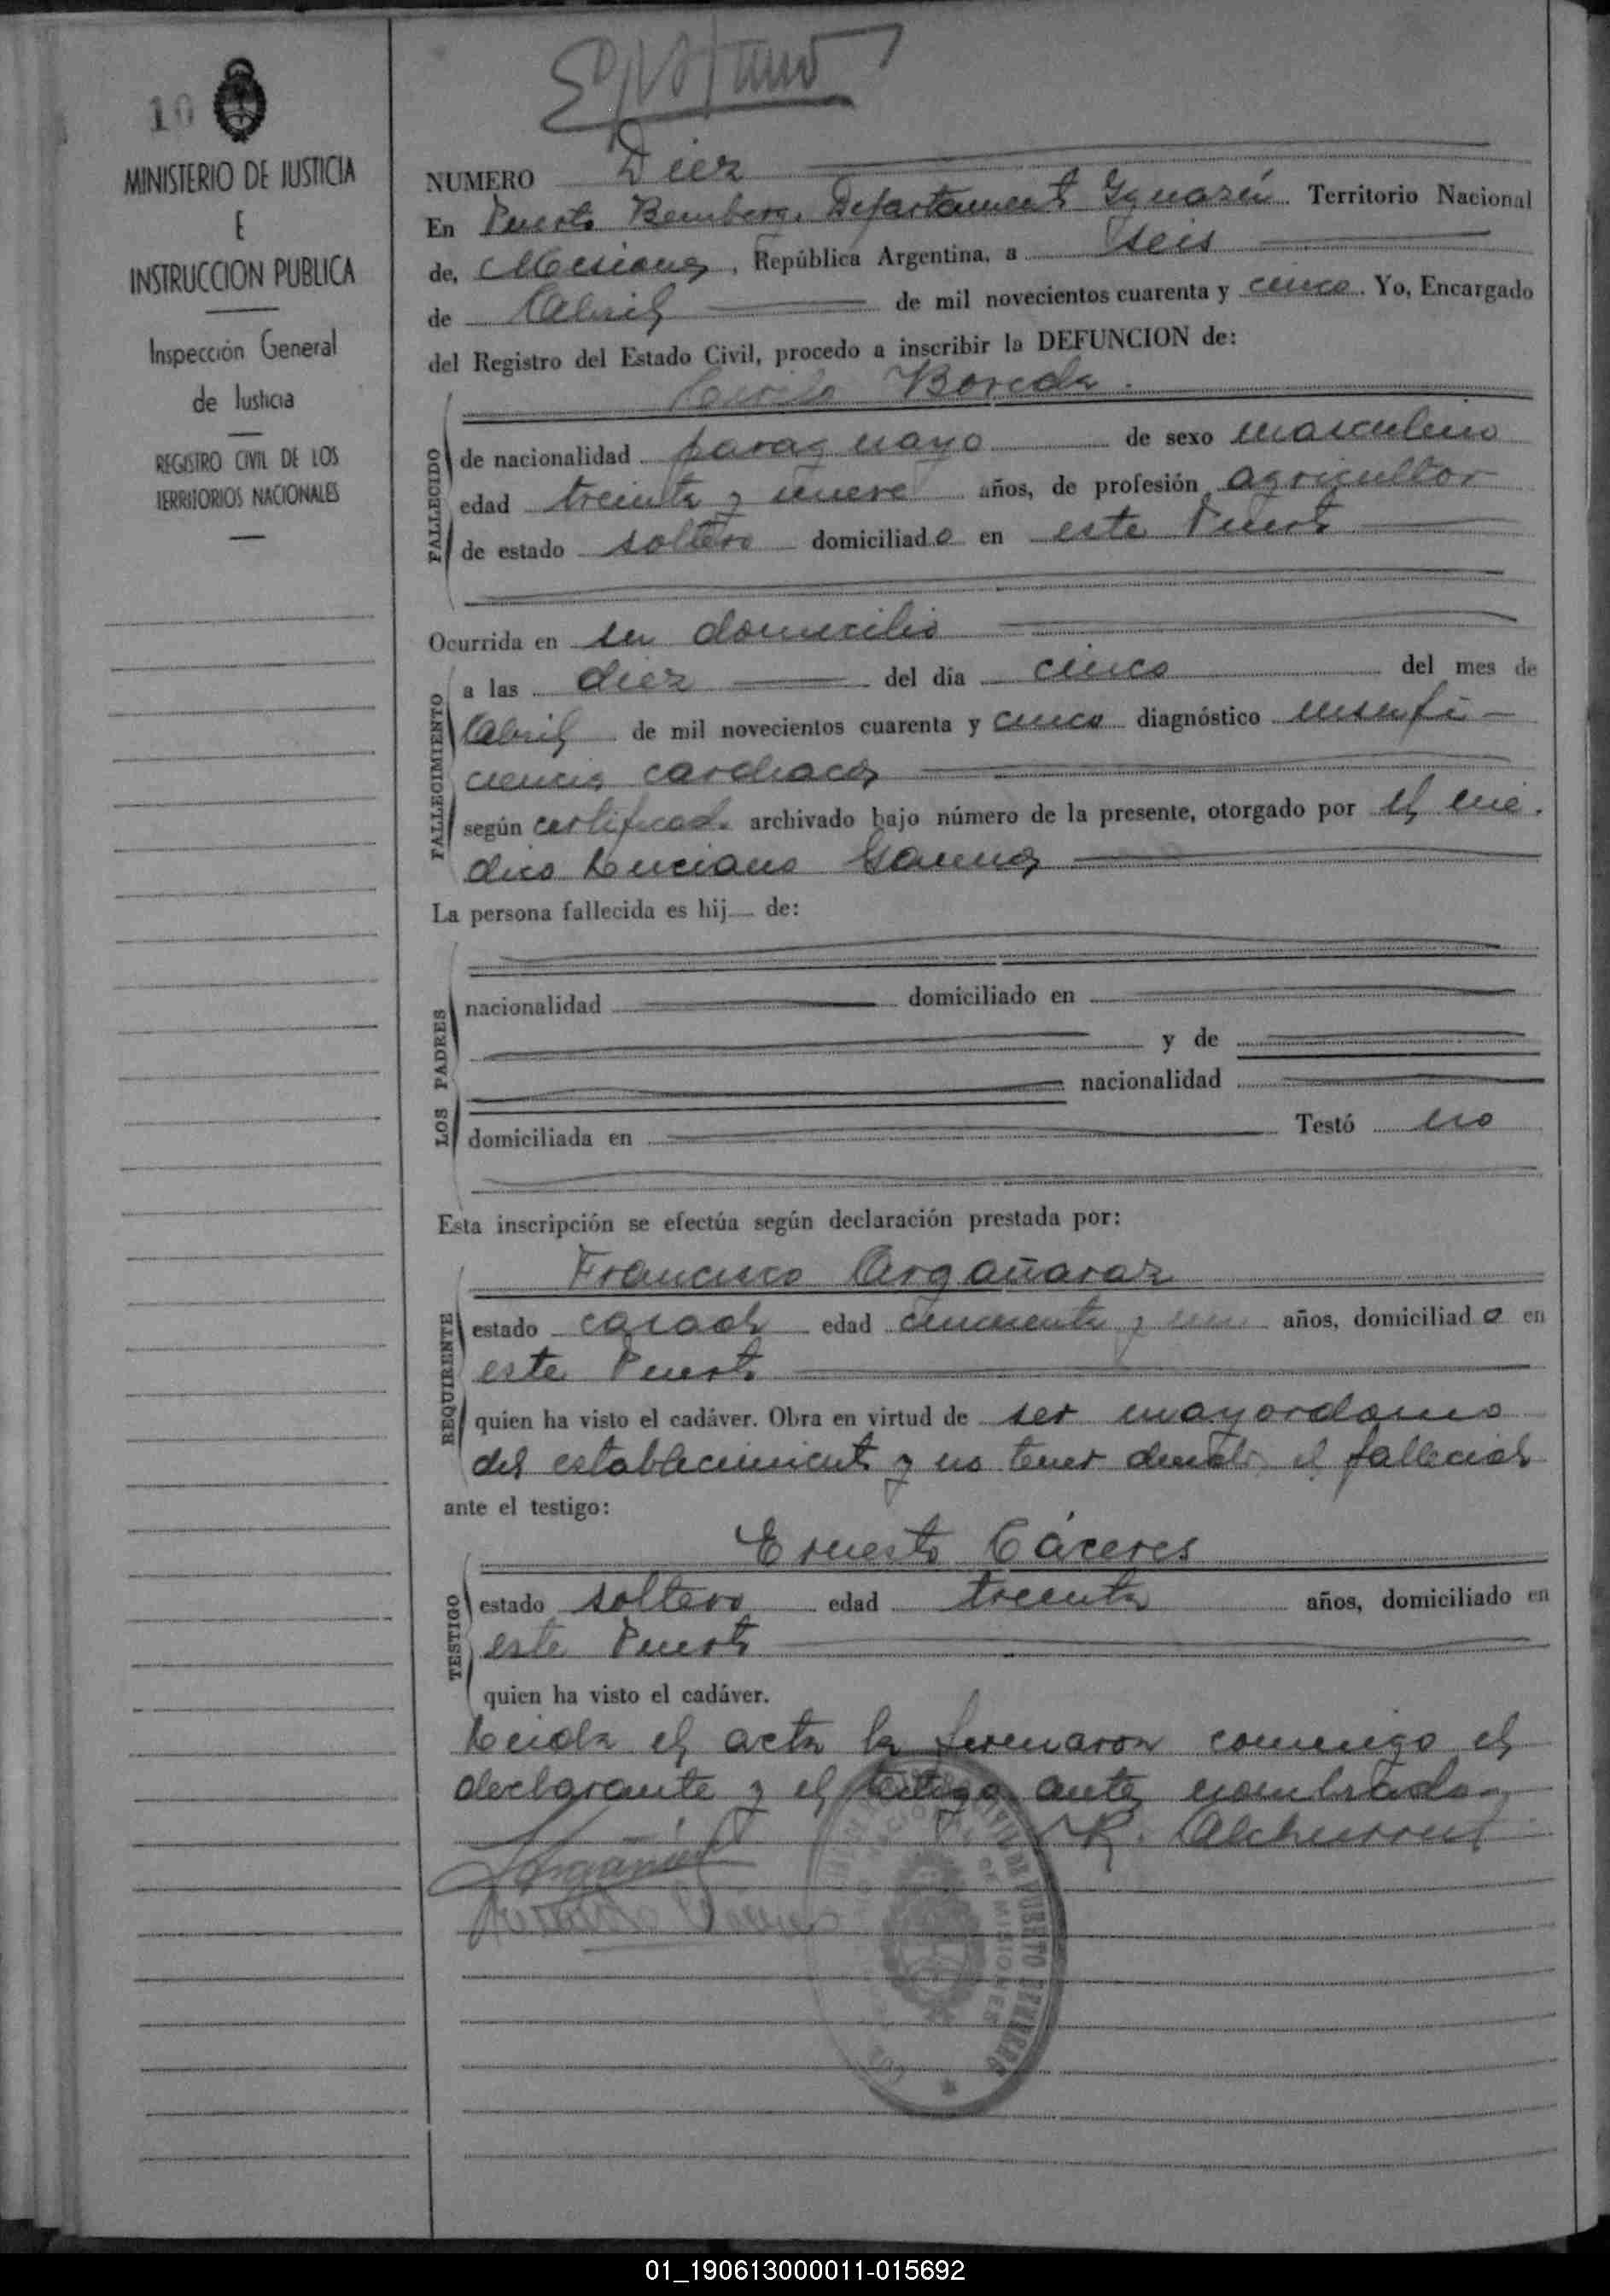 10
MINISTERIO DE JUSTICIA
E
INSTRUCCION PUBLICA
Inspección General
de Justicia
REGISTRO CIVIL DE LOS
TERRITORIOS NACIONALES
NUMERO Diez
En Puerto Bemberg, Departamento Yguazú Territorio Nacional
de, Misiones, República Argentina, a seis
de Abril de mil novecientos cuarenta y cinco. Yo, Encargado
del Registro del Estado Civil, procedo a inscribir la DEFUNCION de:
Cirilo Borda.
FALLECIDO
de nacionalidad paraguayo de sexo masculino
edad treinta y nueve años, de profesión agricultor
de estado soltero domiciliado en este Puerto
Ocurrida en su domicilio
FALLECIMIENTO
a las diez del día cinco del mes de
Abril de mil novecientos cuarenta y cinco diagnóstico insufi-
ciencia cardiaca
según certificado archivado bajo número de la presente, otorgado por el mé-
dico Luciano
La persona fallecida es hij de:
LOS PADRES
nacionalidad domiciliado en
y de
nacionalidad
domiciliada en Testó no
Esta inscripción se efectúa según declaración prestada por:
Francisco Argañaraz
REQUIRENTE
estado casado edad cincuenta y un años, domiciliado en
este Puerto
quien ha visto el cadáver. Obra en virtud de ser mayordomo
del establecimiento y no tener deudo el fallecido
ante el testigo:
Ernesto Cáceres
TESTIGO
estado soltero edad treinta años, domiciliado en
este Puerto
quien ha visto el cadáver.
Leida el acta la firmaron conmigo el
declarante y el testigo antes nombrado.
01_190613000011-015692